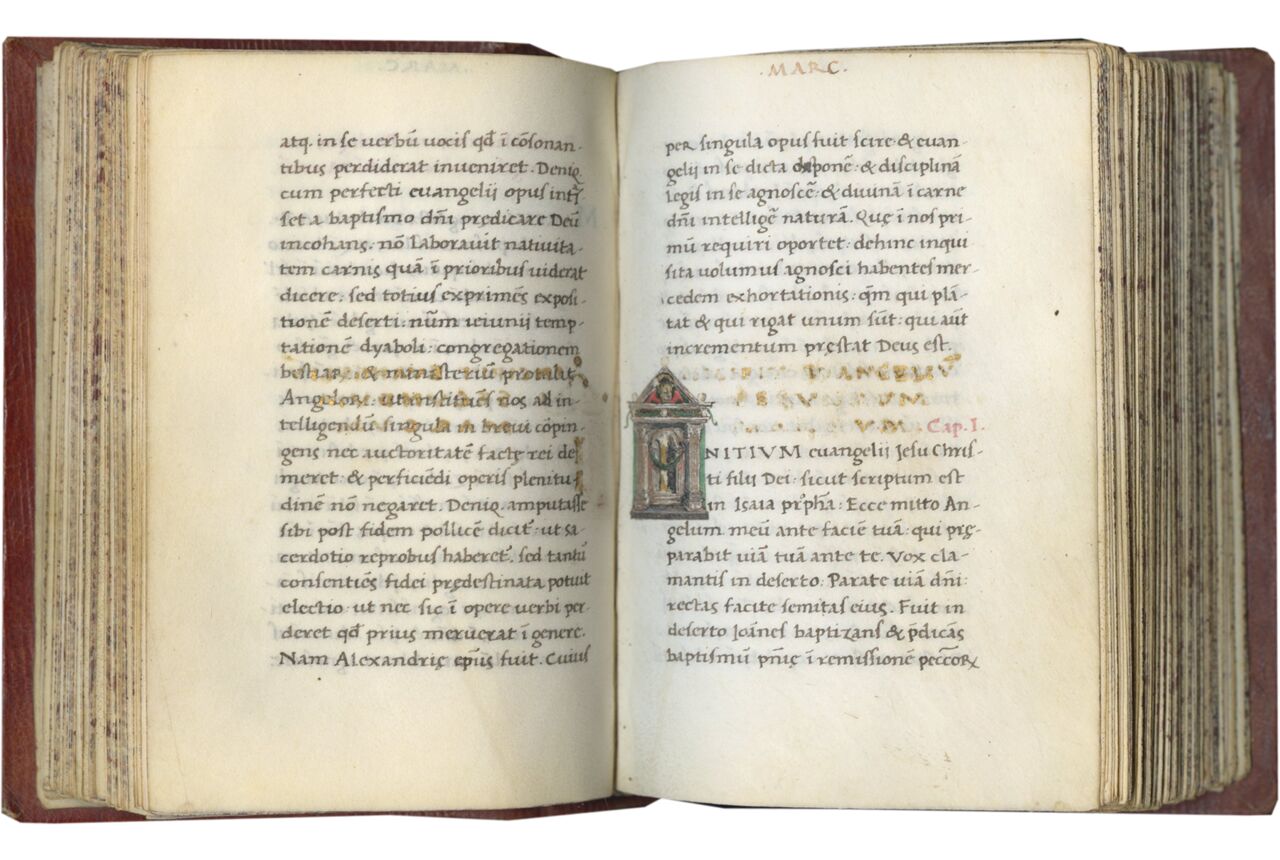 atq. in se verbū vocis qđ ī cōsonan-
tibus perdiderat inveniret. Deniq.
cum perfecti evangelii opus intr̄-
set a baptismo dñi prędicare Deū
incohans: nō laboravit nativita-
tem carnis quā ī prioribus viderat
dicere: sed totius exprimēs exposi-
tionē deserti: num̄ ieiunii temp-
tationē dyaboli: congregationem
bestiaꝝ: & ministeriū protulit
Angeloꝝ: ut instituēs nos ad in-
telligendū singula in brevi cōpin-
gens nec auctoritatē factę rei de-
meret: & perficiēdi operis plenitu-
dinē nō negaret. Deniq. amputasse
sibi post fidem pollicē dicit̄: ut sa-
cerdotio reprobus haberet̄. sed tantū
consentiēs fidei prędestinata potuit
electio: ut nec sic ī opere verbi per-
deret qđ prius meruerat ī genere.
Nam Alexandrię ep̄us fuit. Cuius
.MARC.
per singula opus fuit scire & evan-
gelij in se dicta disponē: & disciplinā
legis in se agnoscē: & divinā ī carne
dñi intelligē naturā. Quę ī nos pri-
mū requiri oportet: dehinc inqui
sita volumus agnosci habentes mer-
cedem exhortationis: qm̄ qui plā-
tat & qui rigat unum sūt: qui aūt
incrementum pręstat Deus est.
EVANGELIV̄
Cap. I.
NITIVM evangelii Jesu Chris-
ti filii Dei: sicut scriptum est
in Isaia prp̄ha: Ecce mitto An-
gelum meū ante faciē tuā: qui prę-
parabit viā tuā ante te. Vox cla-
mantis in deserto: Parate viā dñi:
rectas facite semitas eius. Fuit in
deserto Ioānes baptizans & p̄dicās
baptismū pn̄ię ī remissionē peccōꝝ